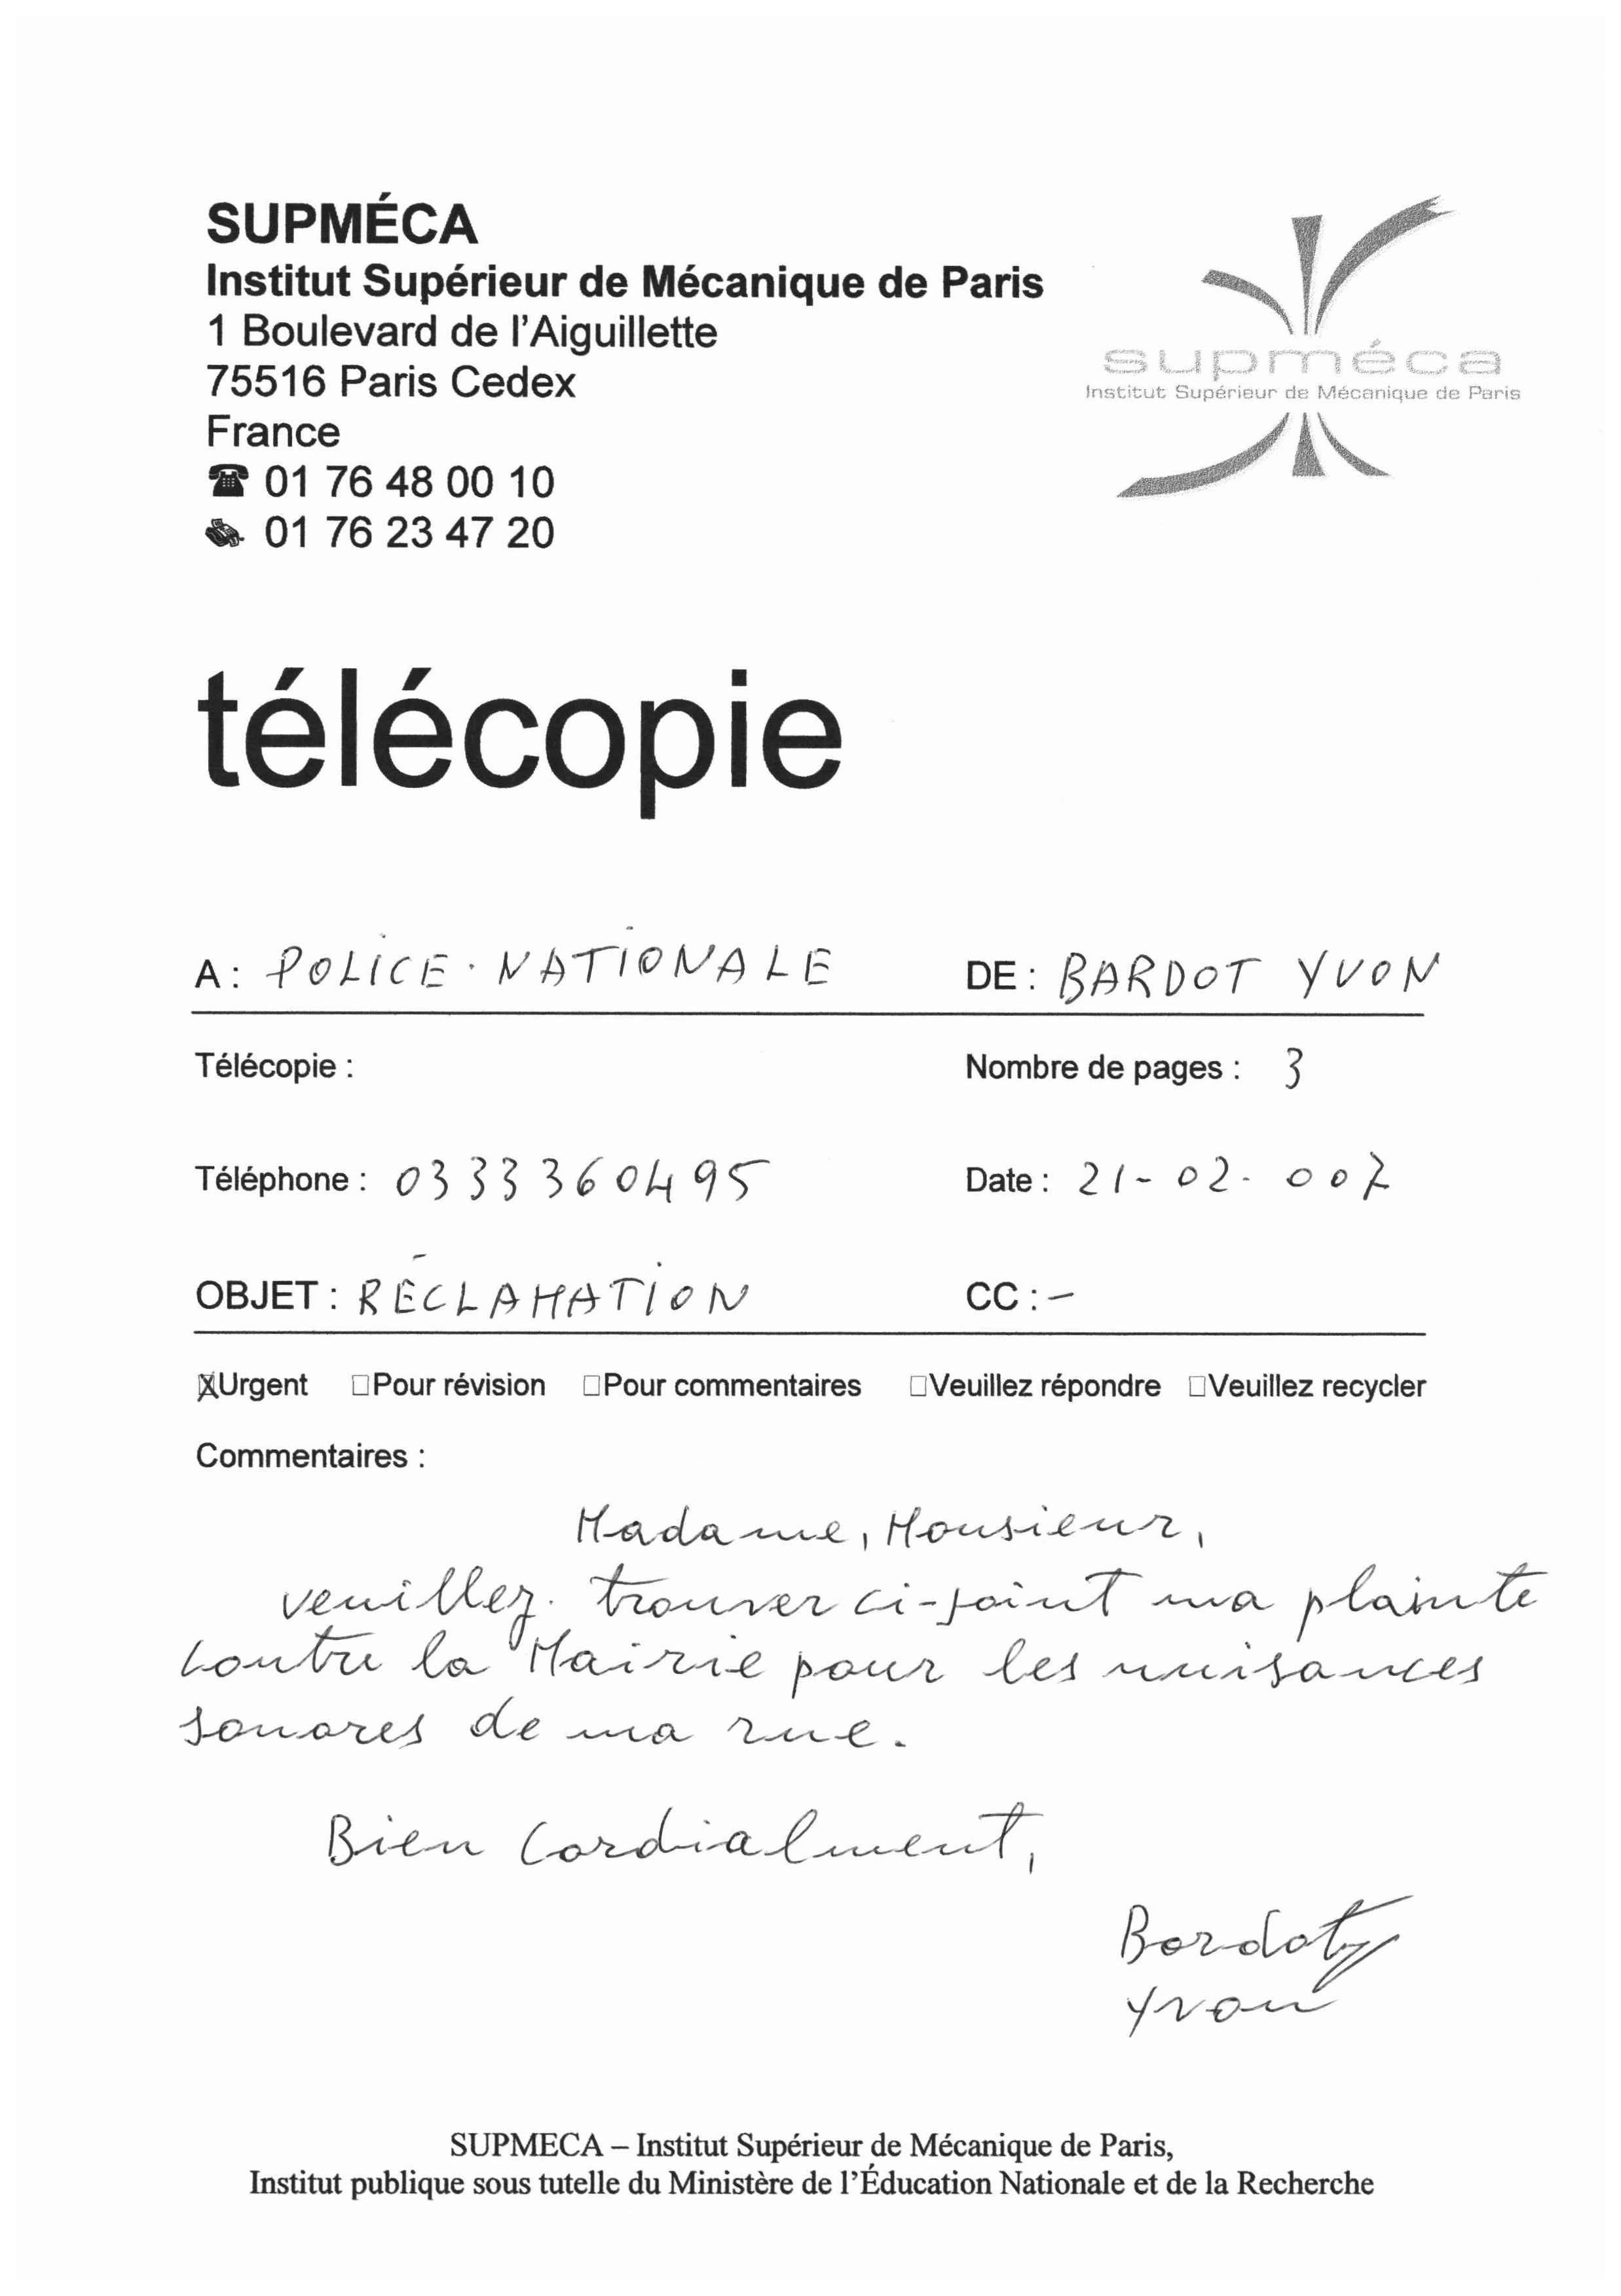 SUPMÉCA
Institut Supérieur de Mécanique de Paris
1 Boulevard de l'Aiguillette
75516 Paris Cedex
France
☎ 01 76 48 00 10
01 76 23 47 20
supméca
Institut Supérieur de Mécanique de Paris
télécopie
A : POLICE NATIONALE DE : BARDOT YVON
Télécopie : Nombre de pages : 3
Téléphone : 0333360495 Date : 21-02-007
OBJET : RÉCLAMATION CC : -
☒Urgent ☐Pour révision ☐Pour commentaires ☐Veuillez répondre ☐Veuillez recycler
Commentaires :
Madame, Monsieur,
veuillez trouver ci-joint ma plainte
contre la Mairie pour les nuisances
sonores de ma rue.
Bien Cordialment,
Bardot
Yvon
SUPMECA – Institut Supérieur de Mécanique de Paris,
Institut publique sous tutelle du Ministère de l'Éducation Nationale et de la Recherche